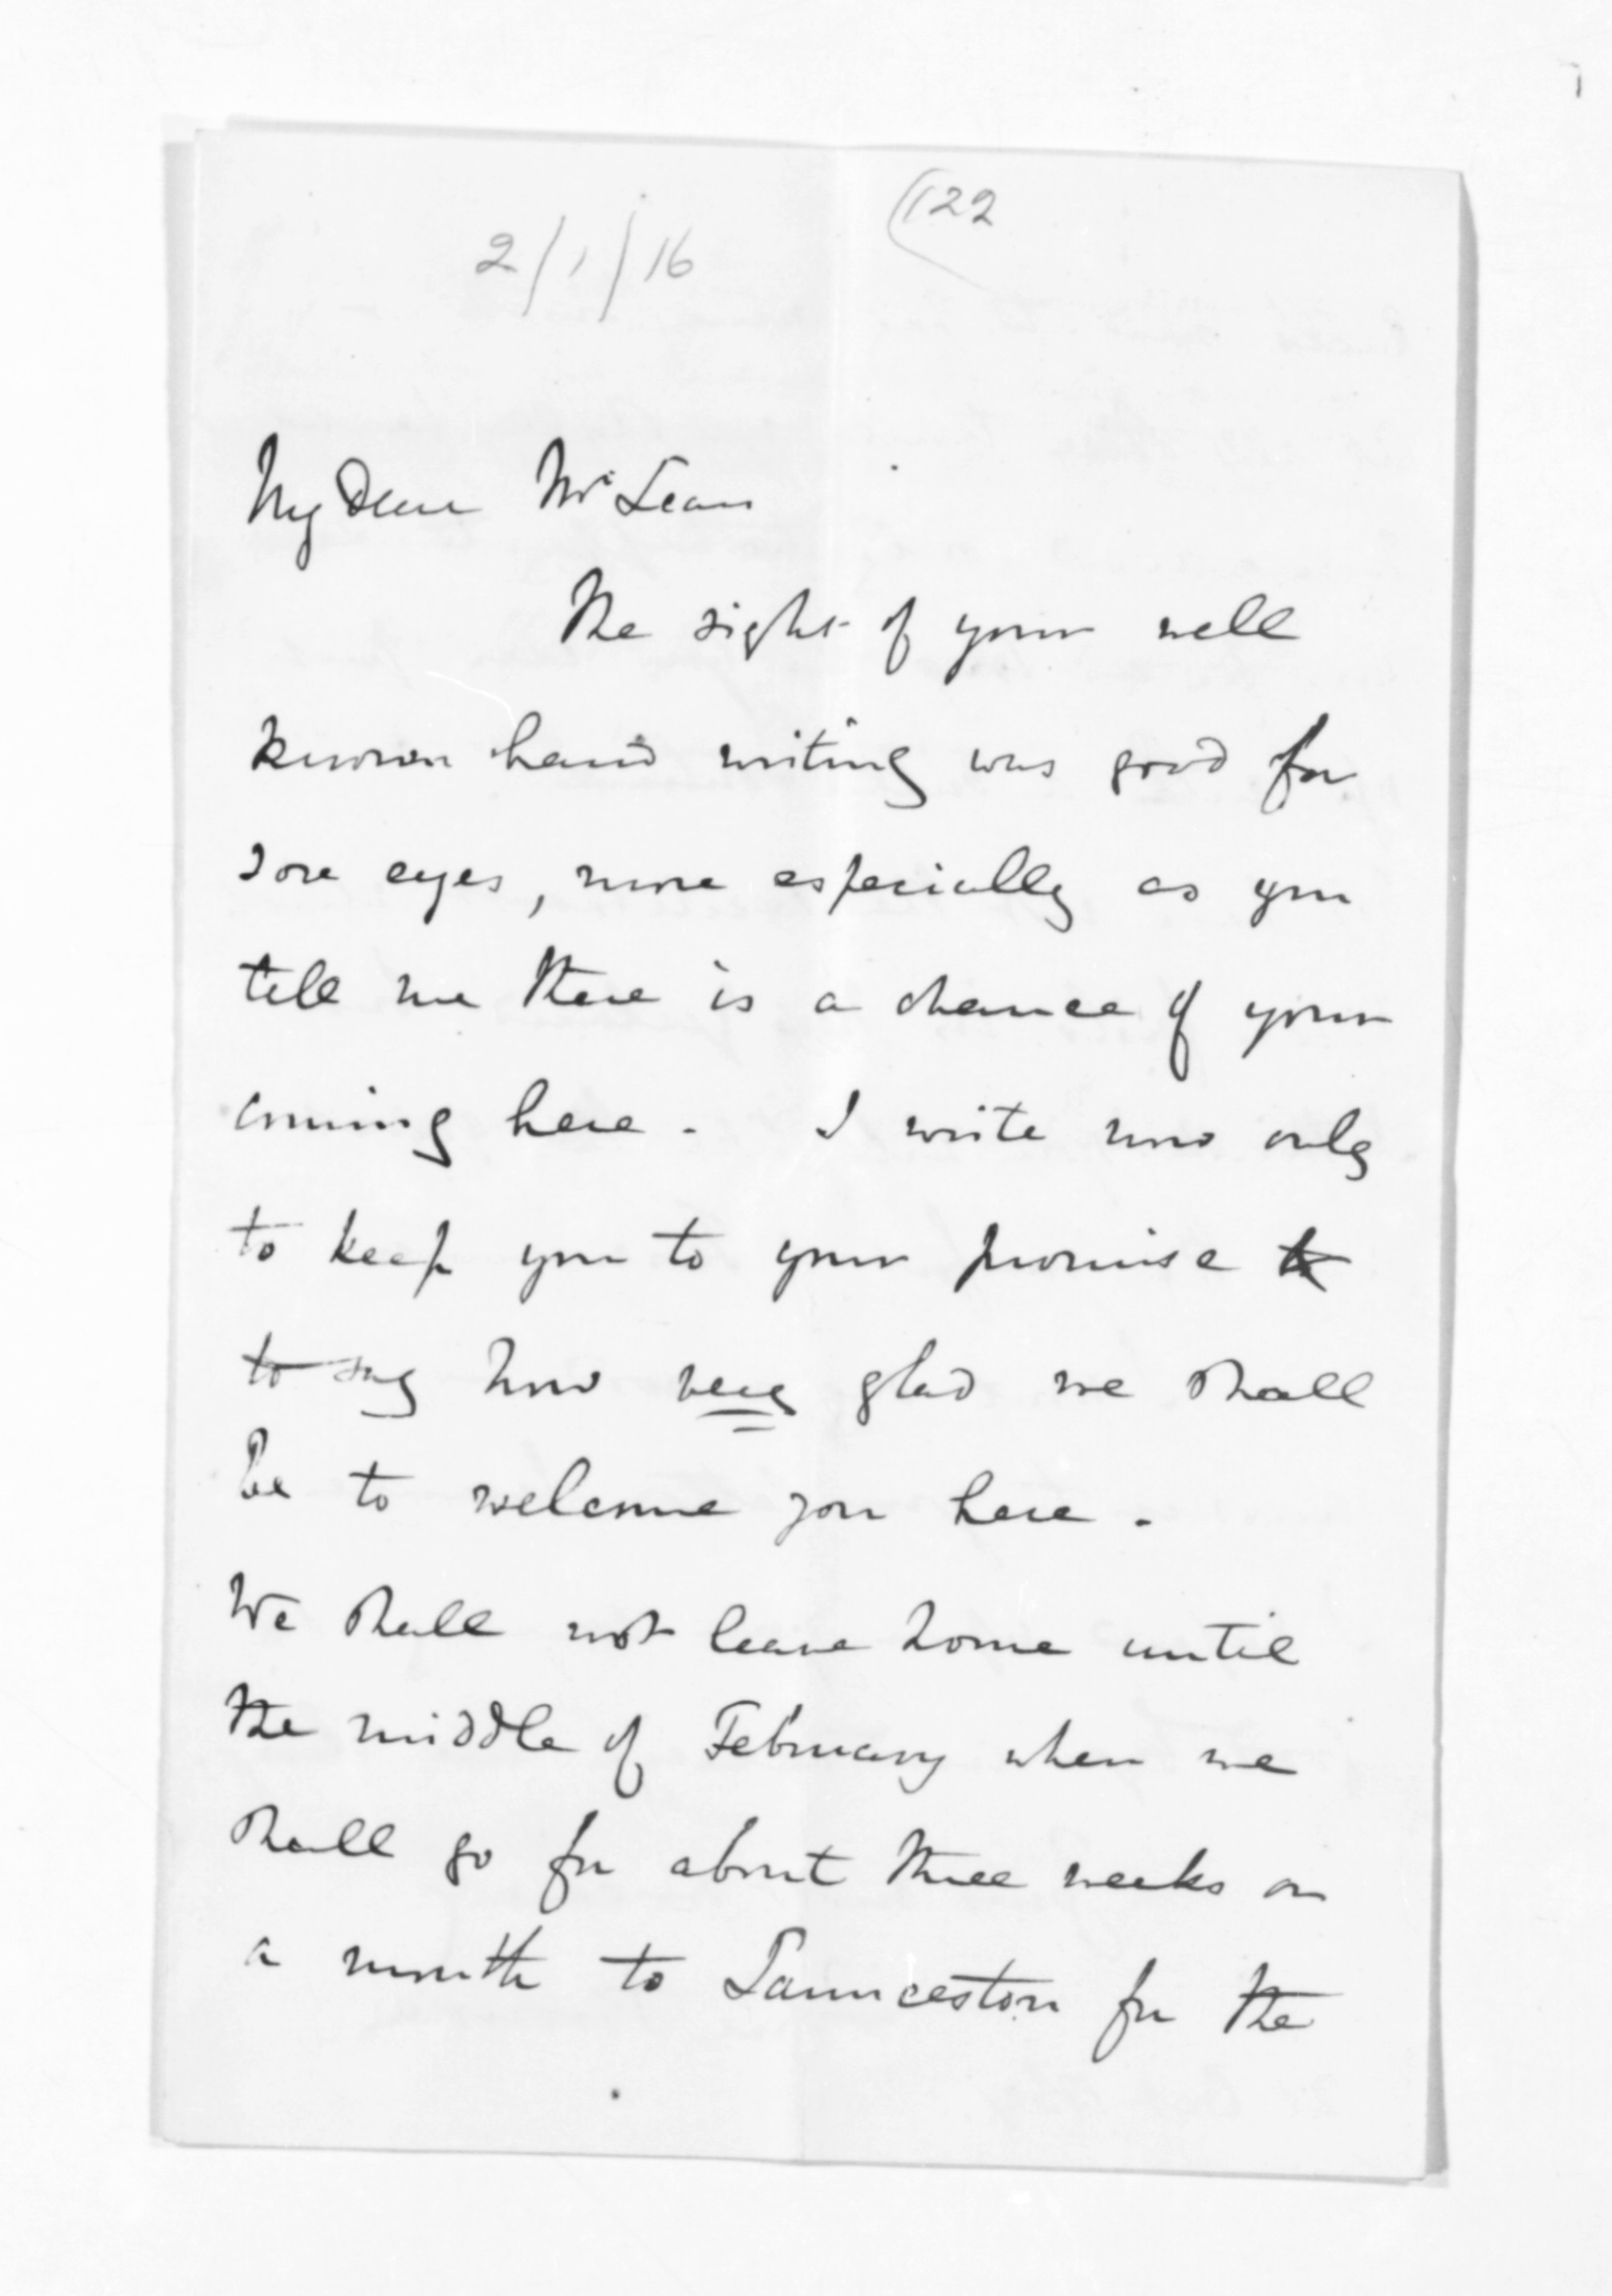 (122
2/1/16
My Dear McLean
The sight of your well
known hand writing was good for
sore eyes, more especially as you
tell me there is a chance of your
coming here. I write now only
to keep you to your promise to
to say how very glad we shall
be to welcome you here.
We shall not leave home until
the middle of February when we
shall go for about three weeks or
a month to Launceston for the